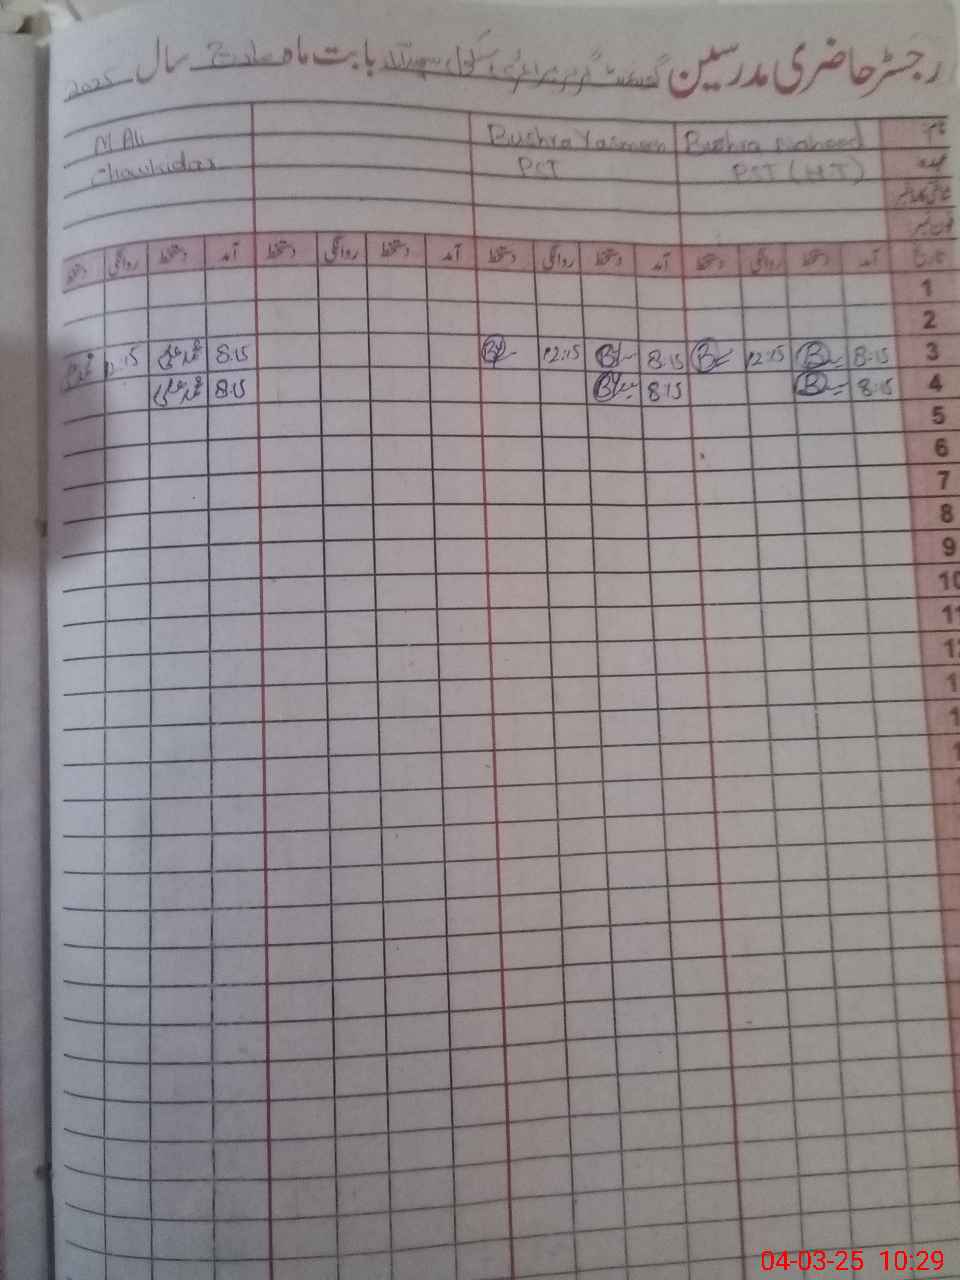 رجسٹر حاضری مدرسین گورنمنٹ گرلز پرائمری سکول بابت ماہ مارچ سال 2025
نام Bushra Naheed Bushra Yasmeen M Ali
عہدہ PST (HT) PST Chowkidar
شناختی کارڈ نمبر
فون نمبر
تاریخ آمد دستخط روانگی دستخط آمد دستخط روانگی دستخط آمد دستخط روانگی دستخط آمد دستخط روانگی دستخط
1
2
3 8:15 12:15 8:15 12:15 8:15 محمد علی 12:15
4 8:15 8:15 8:15 محمد علی
5
6
7
8
9
10
04-03-25 10:29